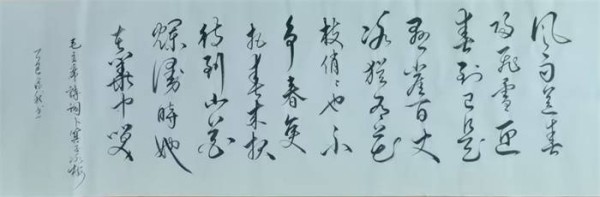 风雨送春
归飞雪迎
春到已是
悬崖百丈
冰犹有花
枝俏俏也不
争春只
把春来报
待到山花
烂漫時她
在丛中笑
毛主席诗词卜算子咏梅